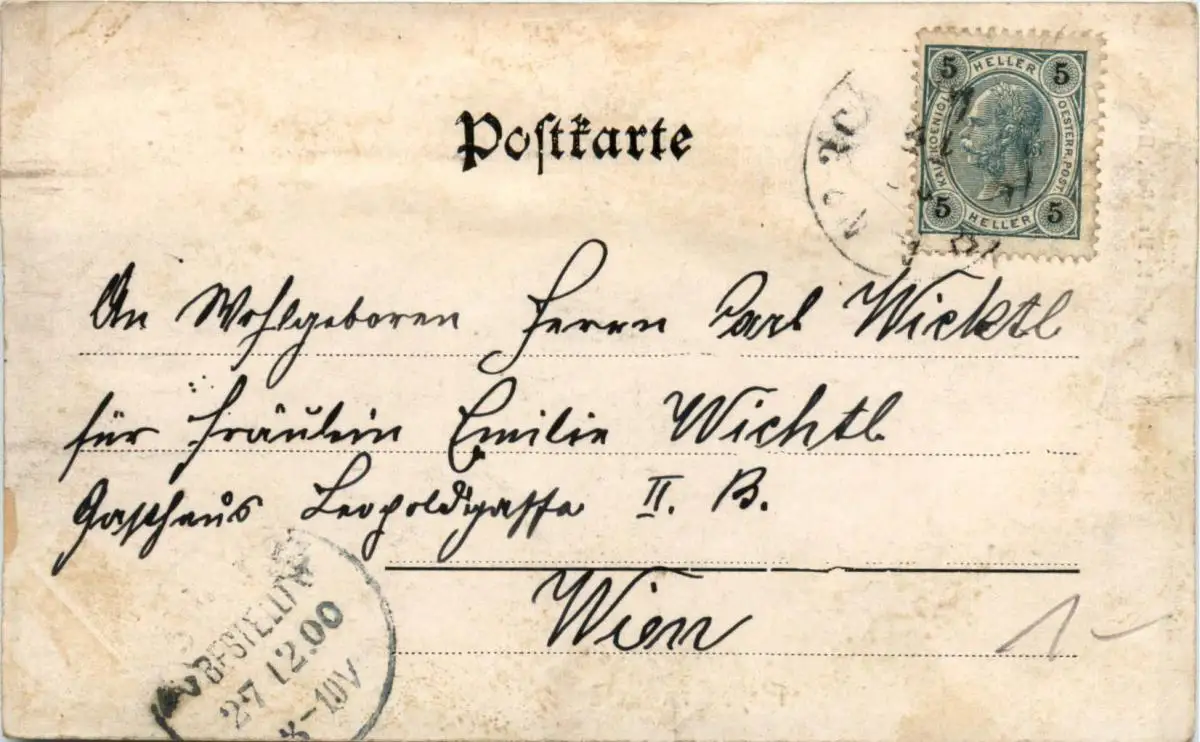 Postkarte
5 HELLER 5
KAIS. KOENIGL. OESTERR. POST.
5 HELLER 5
An Wohlgeboren Herrn Carl Wichtl
für Fräulein Emilie Wichtl
Gasthaus Leopoldsgasse II. B.
Wien
BESTELLT
27 12.00
-10V
1-